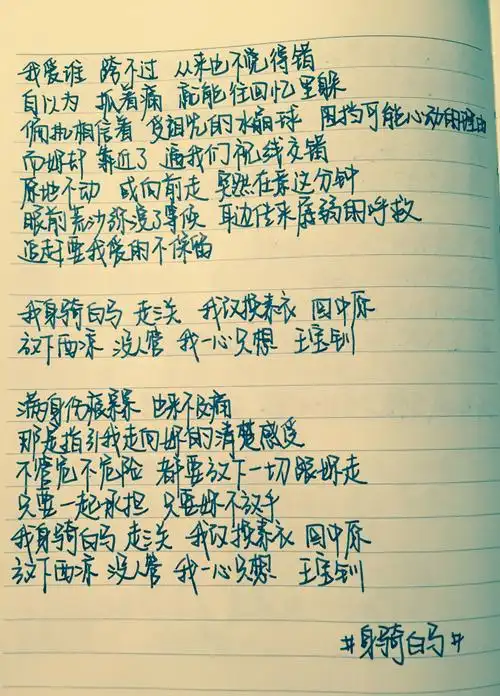 我爱谁 跨不过 从来也不觉得错
自以为 抓着痛 就能往回忆里躲
偏执相信着 受诅咒的水晶球 阻挡可能心动的理由
而妳却 靠近了 逼我们视线交错
原地不动 或向前走 突然在意这分钟
眼前荒沙弥漫了等候 耳边传来孱弱的呼救
追赶要我爱的不保留
我身骑白马 走三关 我改换素衣 回中原
放下西凉 没人管 我一心只想 王宝钏
满身伤痕累累 也来不及痛
那是指引我走向妳的清楚感受
不管危不危险 都要放下一切跟妳走
只要一起承担 只要妳不放手
我身骑白马 走三关 我改换素衣 回中原
放下西凉 没人管 我一心只想 王宝钏
#身骑白马#